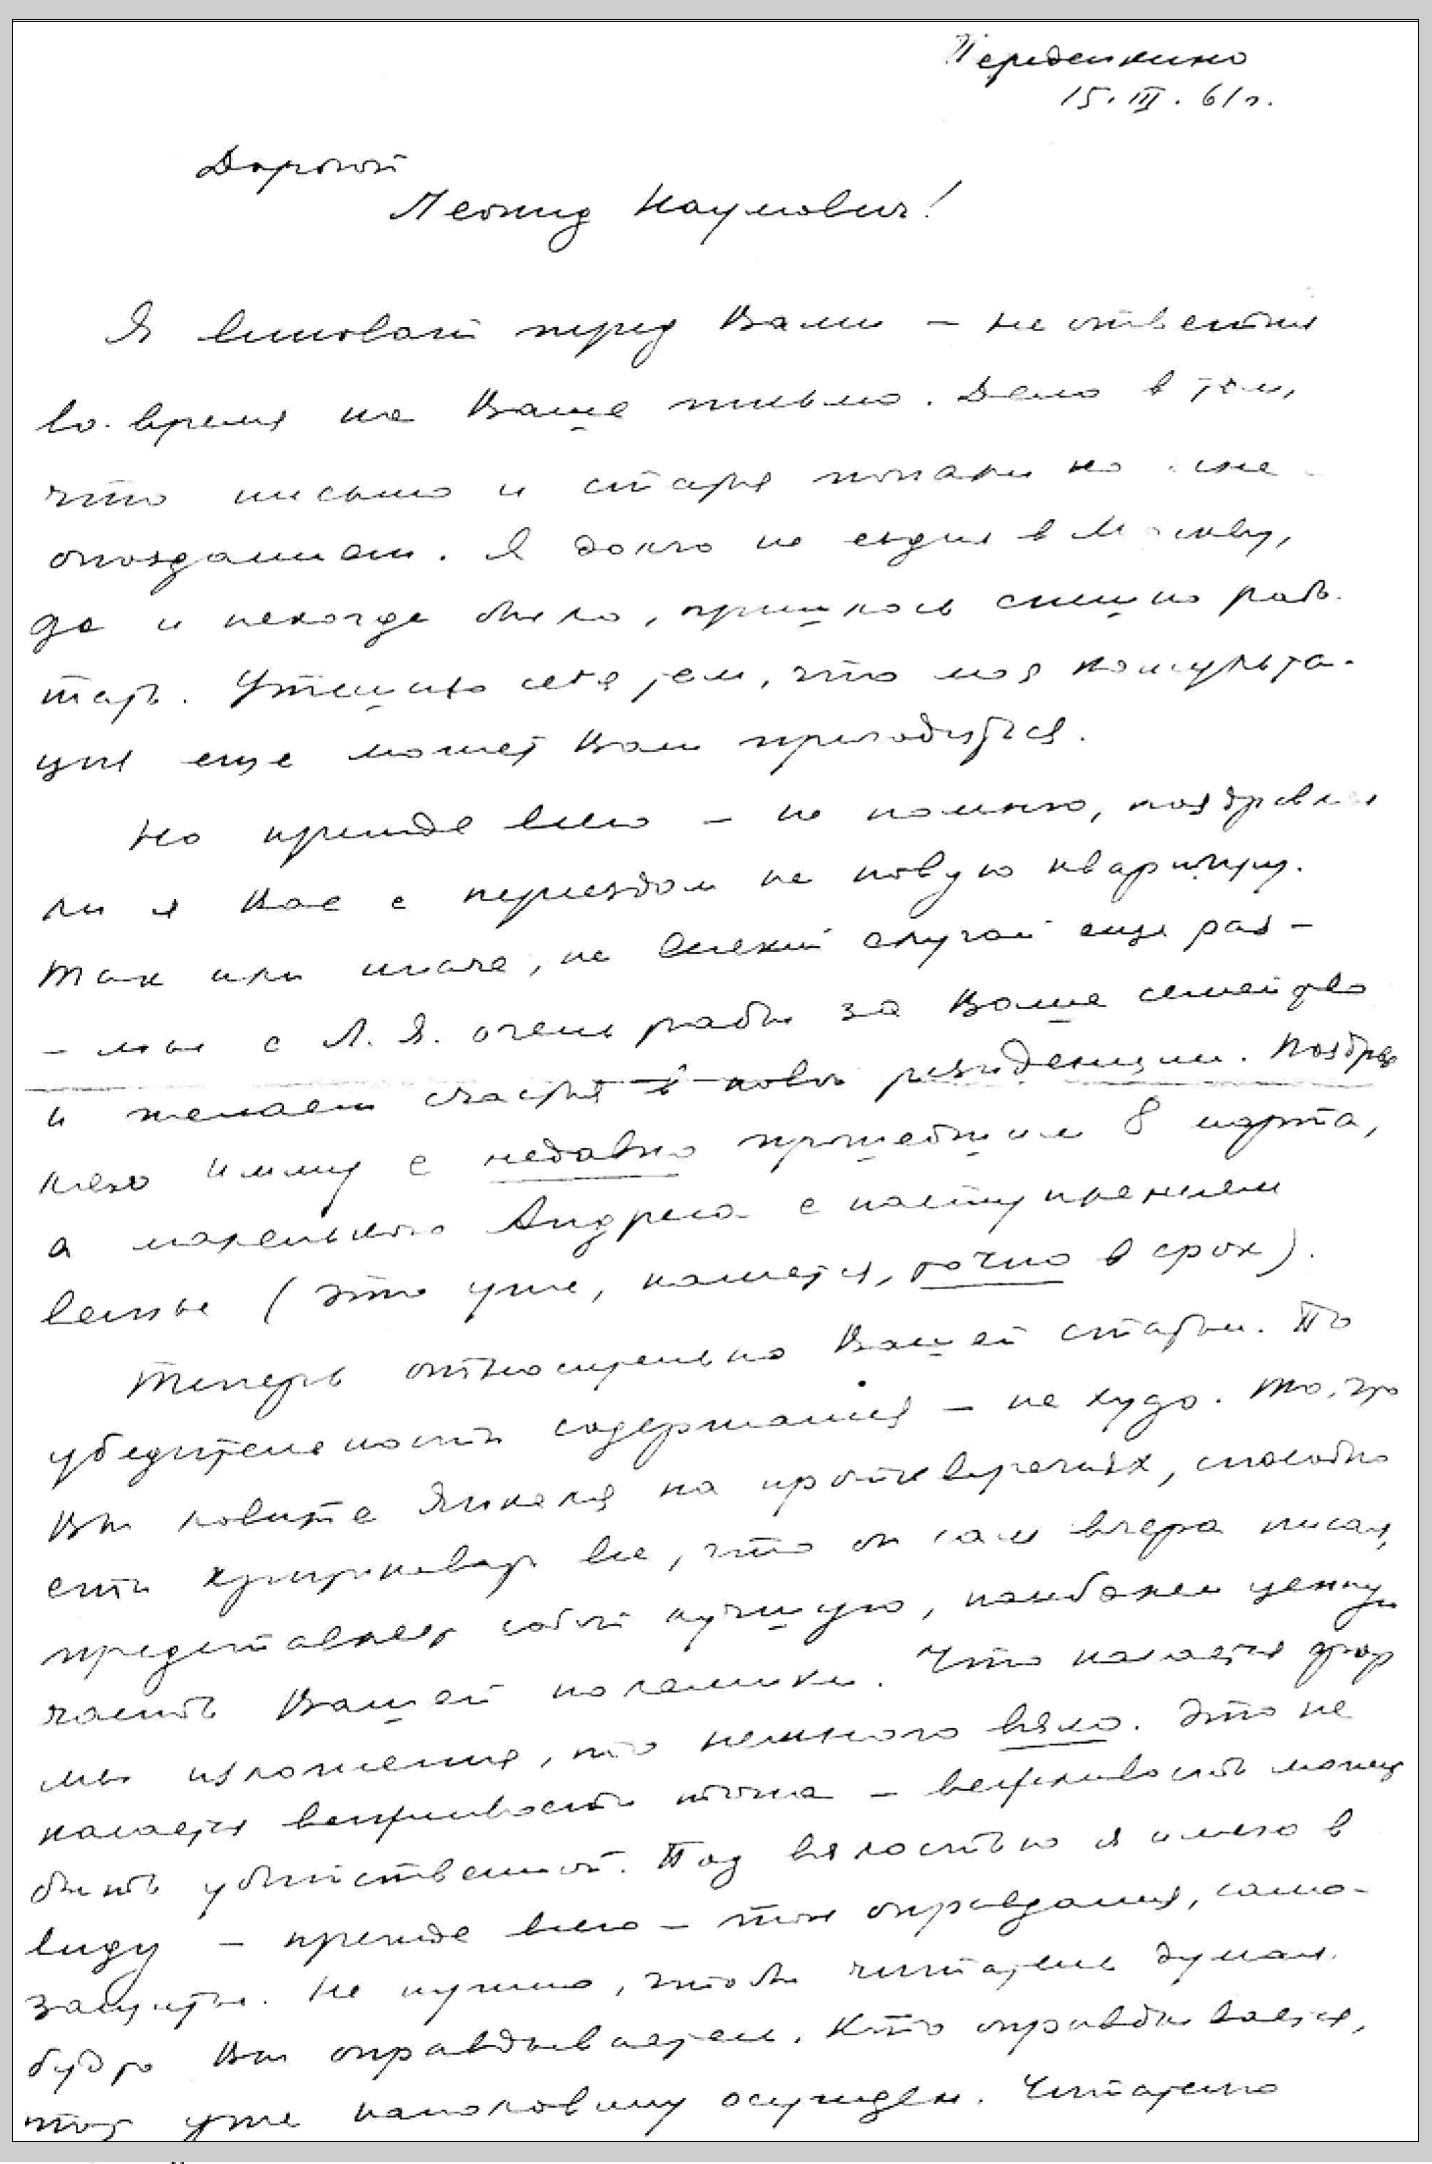 Переделкино
15.III.61г.
Дорогой
Леонид Наумович!
Я виноват перед Вами – не ответил
во-время на Ваше письмо. Дело в том,
что письмо и статья попали ко мне
с опозданием. Я долго не ездил в Москву,
да и некогда было, пришлось спешно рабо-
тать. Утешаю себя тем, что моя консульта-
ция еще может Вам пригодиться.
Но прежде всего – не помню, поздравлял
ли я Вас с переездом на новую квартиру.
Так или иначе, на всякий случай еще раз –
– мы с Л. Я. очень рады за Ваше семейство
и желаем счастья в новой резиденции. Поздрав
ляю Имму с недавно прошедшим 8 марта,
а маленького Андрея с наступлением
весны (это уже, кажется, точно в срок).
Теперь относительно Вашей статьи. По
убедительности содержания – не худо. То, что
Вы ловите Якеля на противоречиях, способно
сти критиковать все, что он сам вчера писал,
представляет собой лучшую, наиболее ценную
часть Вашей полемики. Что касается фор
мы изложения, то немного вяло. Это не
касается вежливости тона – вежливость может
быть убийственной. Под вялостью я имею в
виду – прежде всего – тон оправдания, само-
защиты. Не нужно, чтобы читатель думал
будто Вы оправдываетесь. Кто оправдывается,
тот уже наполовину осужден. Читателю